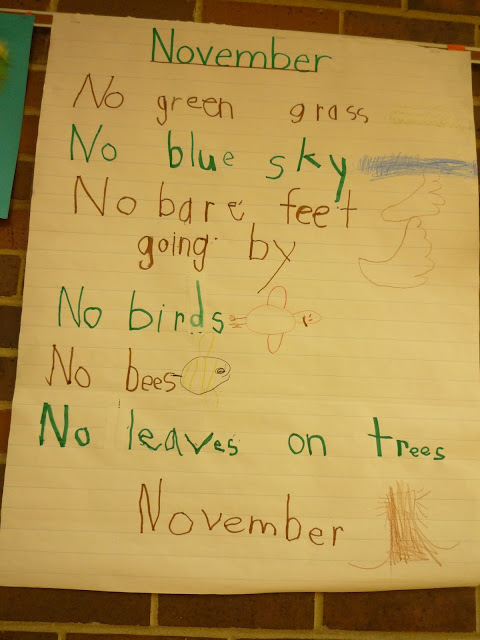 November
No green grass
No blue sky
No bare feet
going by
No birds
No bees
No leaves on trees
November